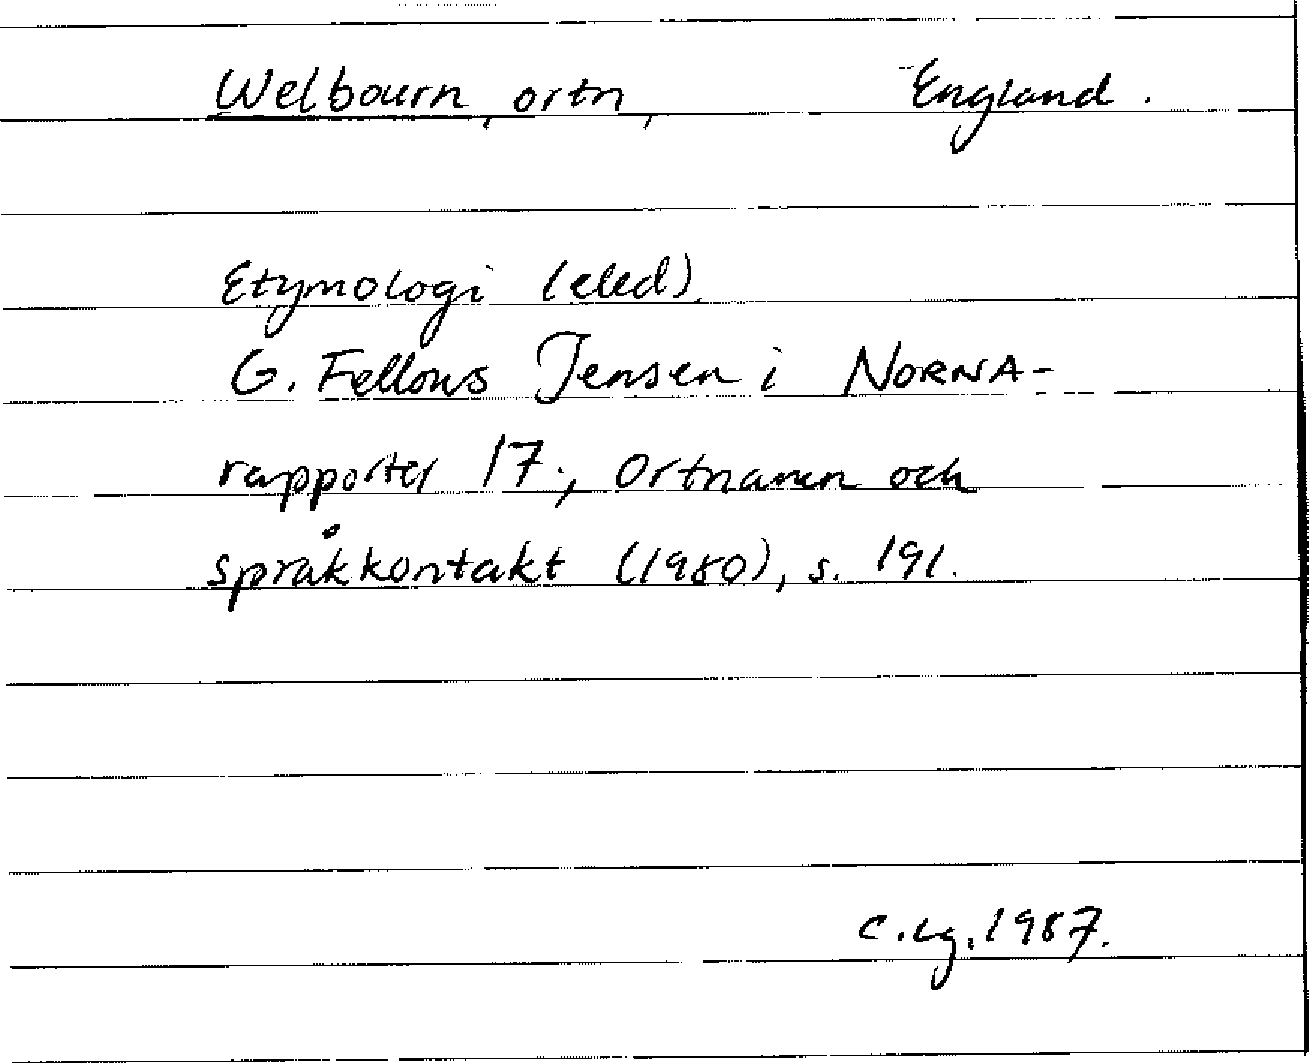 Welbourn, ortn, England.
Etymologi (eled).
G. Fellows Jensen i NORNA-
rapporter 17; Ortnamn och
språkkontakt (1980), s. 191.
C.Lg. 1987.